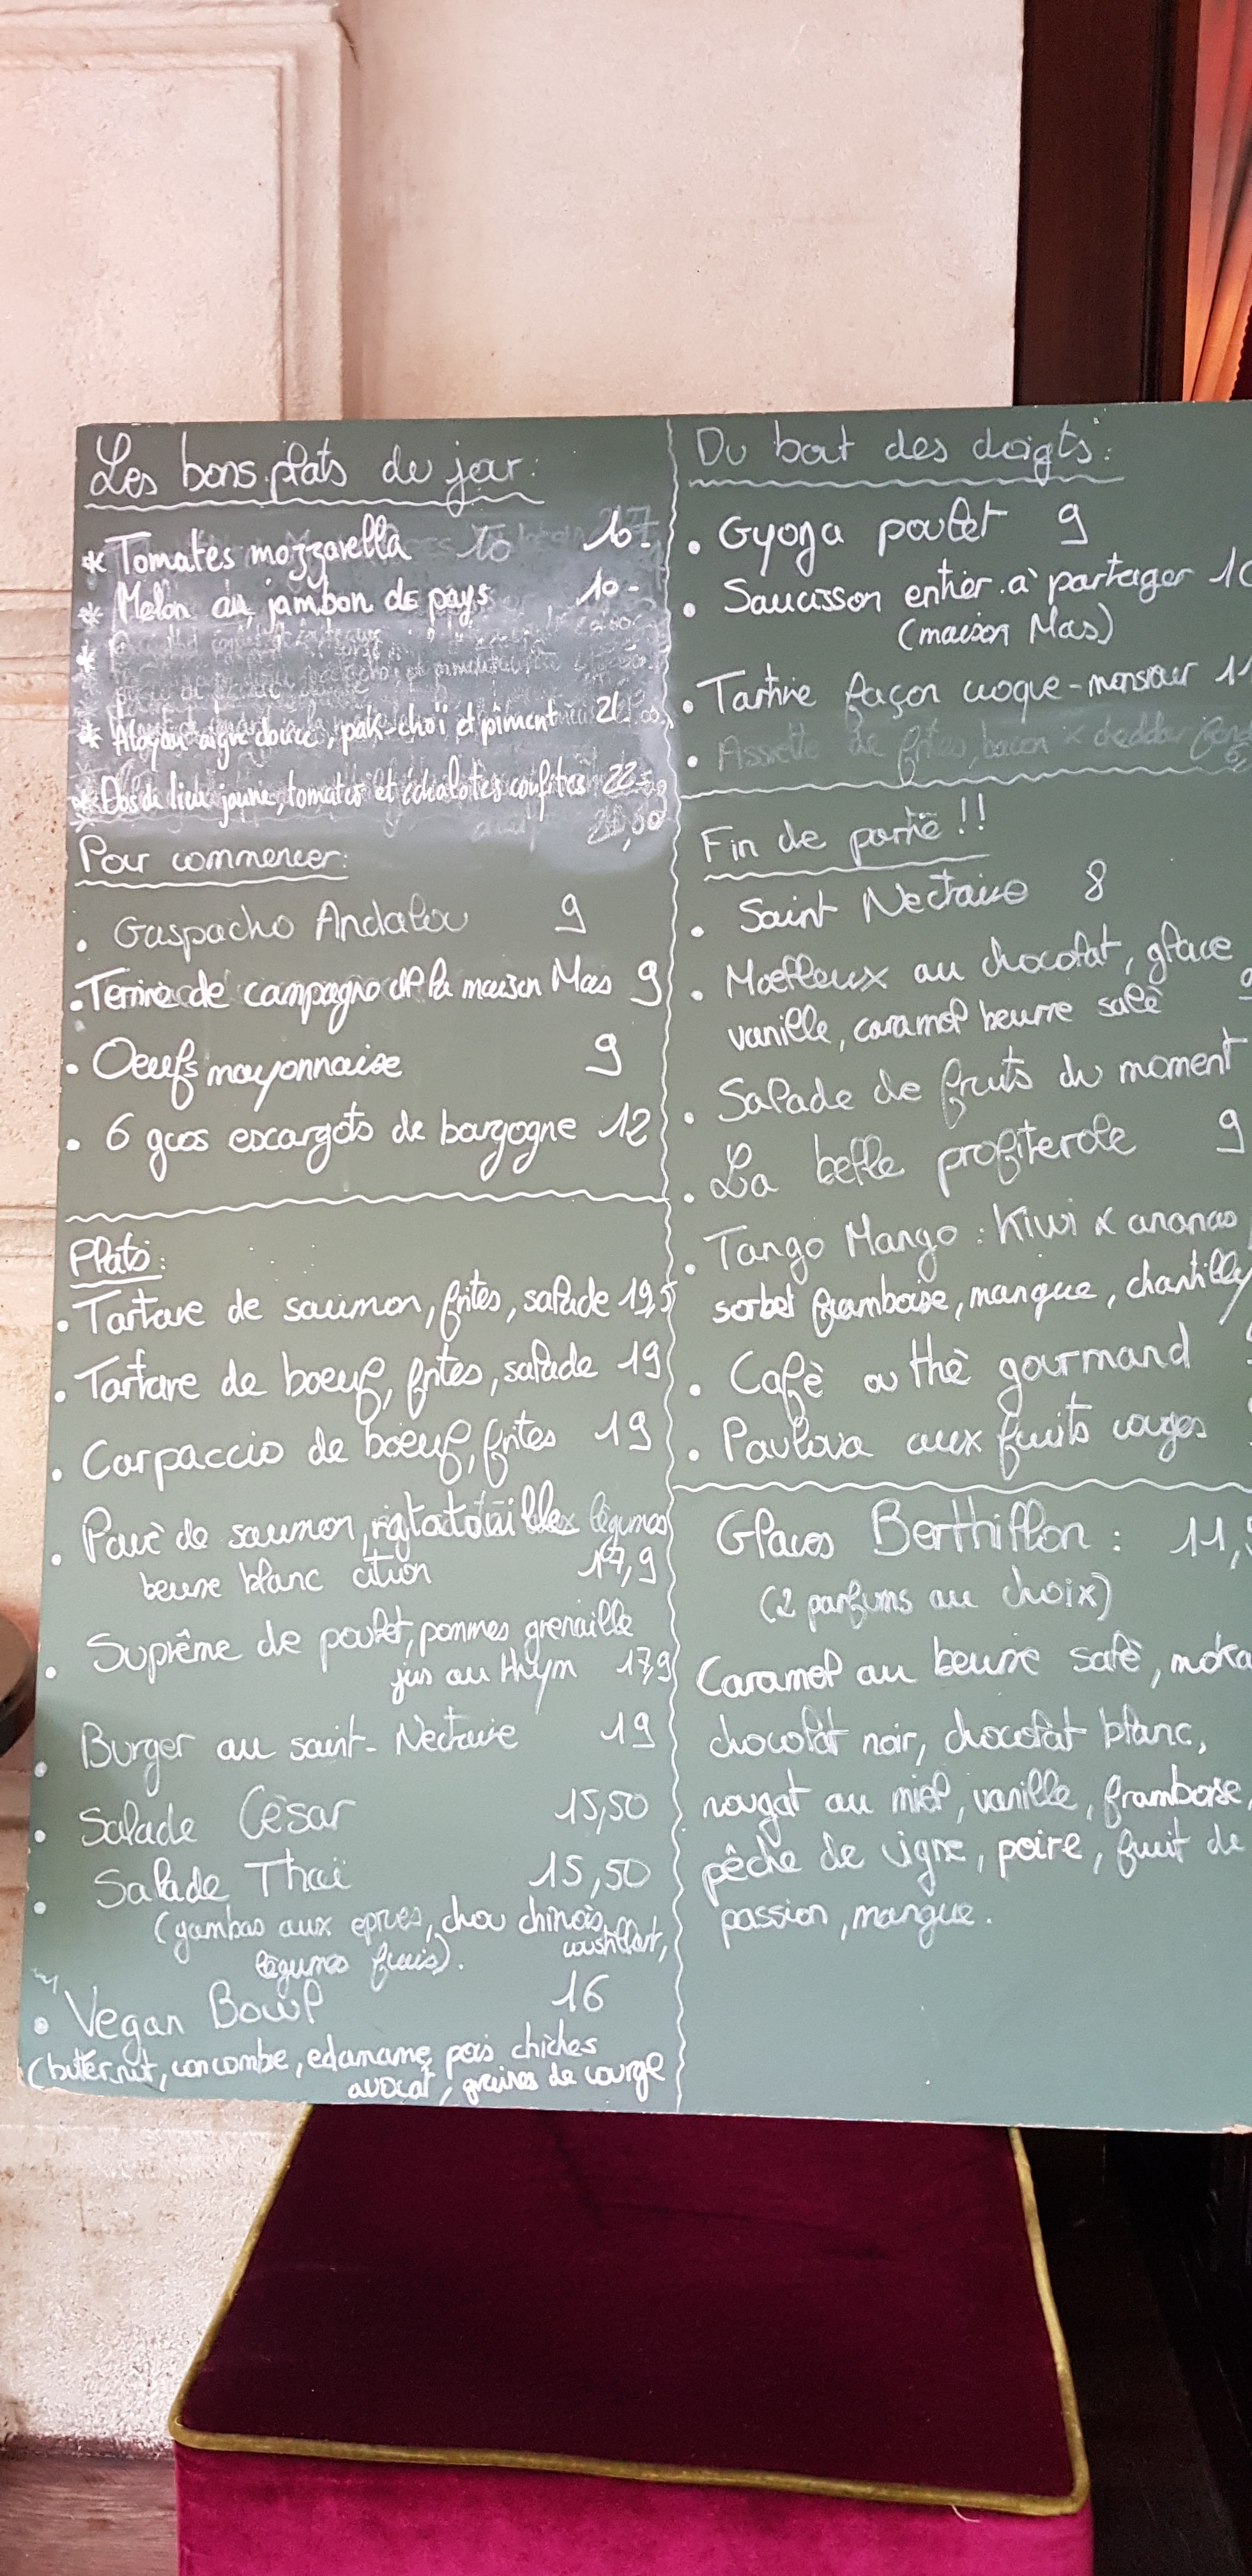 Les bons plats du jour:
* Tomates mozzarella 10 10-
* Melon au jambon de pays 10-
* aigre douce, pak-choï et piment 21
* Dos de lieu jaune, tomates et échalotes confites 22
Pour commencer:
. Gaspacho Andalou 9
. Terrine de campagne de la maison Mas 9
. Oeufs mayonnaise 9
. 6 gros escargots de bourgogne 12
Plats:
. Tartare de saumon, frites, salade 19,5
. Tartare de boeuf, frites, salade 19
. Carpaccio de boeuf, frites 19
. Pavé de saumon, ratatouille légumes
beurre blanc citron 17,9
. Suprême de poulet, pommes grenaille
jus au thym 17,9
. Burger au saint-Nectaire 19
. Salade César 15,50
. Salade Thaï 15,50
(gambas aux epices, chou chinois,
croustillant,
légumes frais).
. Vegan Bowl 16
(buternut, concombe, edamame, pois chiches
avocat, graines de courge
Du bout des doigts:
. Gyoza poulet 9
. Saucisson entier à partager
(maison Mas)
. Tartine façon croque-monsieur 11
. Assiette de frites, bacon x cheddar
Fin de partie!!
. Saint Nectaire 8
. Moelleux au chocolat, glace
vanille, caramel beurre salé
. Salade de fruits du moment
. La belle profiterole 9
. Tango Mango: Kiwi x ananas
sorbet framboise, mangue, chantilly
. Café ou thé gourmand
. Pavlova aux fruits rouges
Glaces Berthillon: 11,
(2 parfums au choix)
Caramel au beurre salé, moka
chocolat noir, chocolat blanc,
nougat au miel, vanille, framboise,
pêche de vigne, poire, fruit de
passion, mangue.